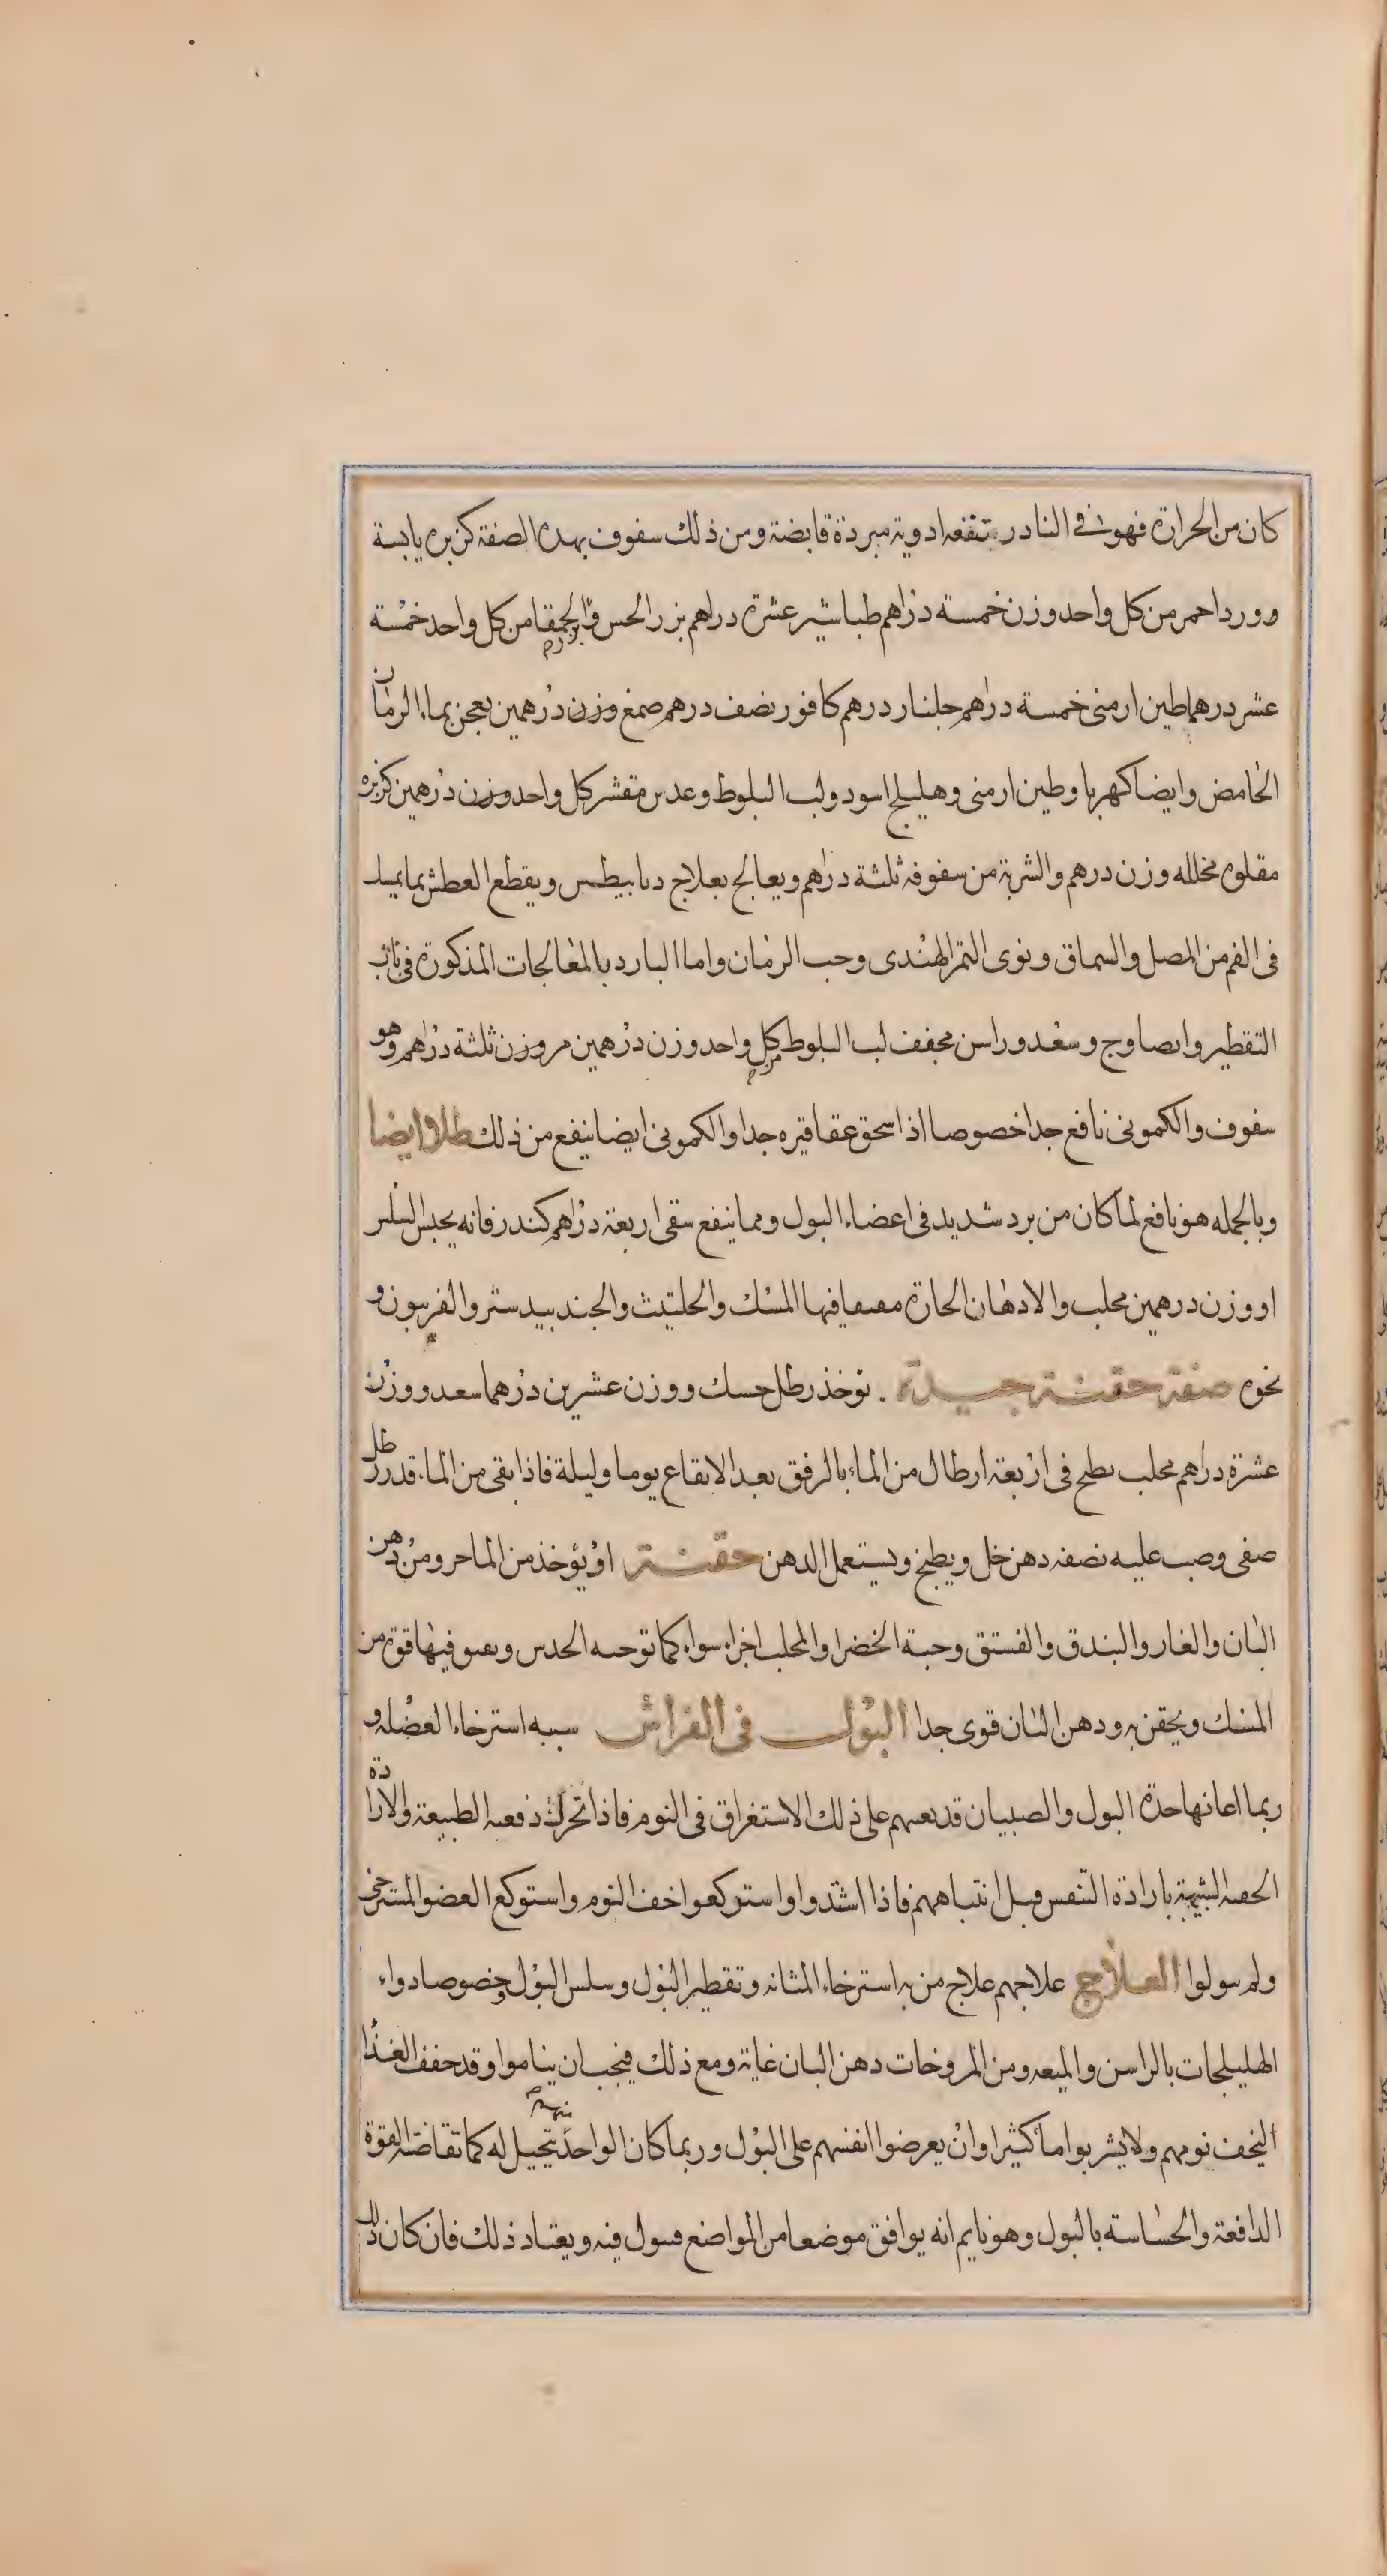 كان من الحرارة فهو في النادر تنفعه ادوية مبردة قابضة ومن ذلك سفوف بهده الصفة كزبره يابسة
وورد احمر من كل واحد وزن خمسة دراهم طباشير عشرة دراهم بزر الخس وبزر الحمقا من كل واحد خمسة
عشر درهما طين ارمني خمسة دراهم جلنار درهم كافور نصف درهم صمغ وزن درهمين يعجن بماء الرمان
الحامض وايضا كهربا وطين ارمني وهليلج اسود ولب البلوط وعدس مقشر كل واحد وزن درهمين كزبره
مقلوه مخلله وزن درهم والشربة من سفوفه ثلثة دراهم ويعالج بعلاج ديابيطس ويقطع العطش بما يمسك
في الفم من المصل والسماق ونوى التمر الهندى وحب الرمان واما البارد بالمعالجات المذكورة في باب
التقطير وايصا وج وسعد وراسن مجفف لب البلوط من كل واحد وزن درهمين مر وزن ثلثة دراهم وهو
سفوف والكمونى نافع جدا خصوصا اذا سحق عقاقيره جدا والكمونى ايضا ينفع من ذلك طلاء وايضا
وبالجمله هو نافع لما كان من برد شديد في اعضاء البول ومما ينفع سقى اربعة دراهم كندر فانه يحبس السلس
او وزن درهمين محلب والادهان الحارة مفتقا فيها المسك والحلتيث والجندبيدستر والفربيون و
نحوه صفة حقنة جيدة . يؤخذ رطل حسك ووزن عشرين درهما سعد ووزن
عشرة دراهم محلب يطبخ في اربعة ارطال من الماء بالرفق بعد الانقاع يوما وليلة فاذا بقى من الماء قدر رطل
صفى وصب عليه نصفه دهن خل ويطبخ ويستعمل الدهن حقنة او يؤخذ من الماحر ومن دهن
البان والغار والبندق والفستق وحبة الخضرا والمحلب اجزاء سواء كما توجبه الحدس ويفتق فيها قوة من
المسك ويحقن به ودهن البان قوى جدا البول في الفراش سببه استرخاء العضلة و
ربما اعانها حدة البول والصبيان قد يعينهم على ذلك الاستغراق في النوم فاذا تحرك دفعه الطبيعة والارادة
الخفية الشبيهة بارادة التنفس قبل انتباههم فاذا اشتدوا واستوكعوا خف النوم واستوكع العضو المسترخى
ولم يبولوا العلاج علاجهم علاج من به استرخاء المثانه وتقطير البول وسلس البول وخصوصا دواء
الهليلجات بالراسن والميعه ومن المروخات دهن البان غاية ومع ذلك فيجب ان يناموا وقد خفف الغذاء
ليخف نومهم ولا يشربوا ماء كثيرا وان يعرضوا انفسهم على البول وربما كان الواحد منهم يتخيل له كما تقاضته القوة
الدافعة والحساسة بالبول وهو نايم انه يوافق موضعا من المواضع فيبول فيه ويعتاد ذلك فان كان ذلك